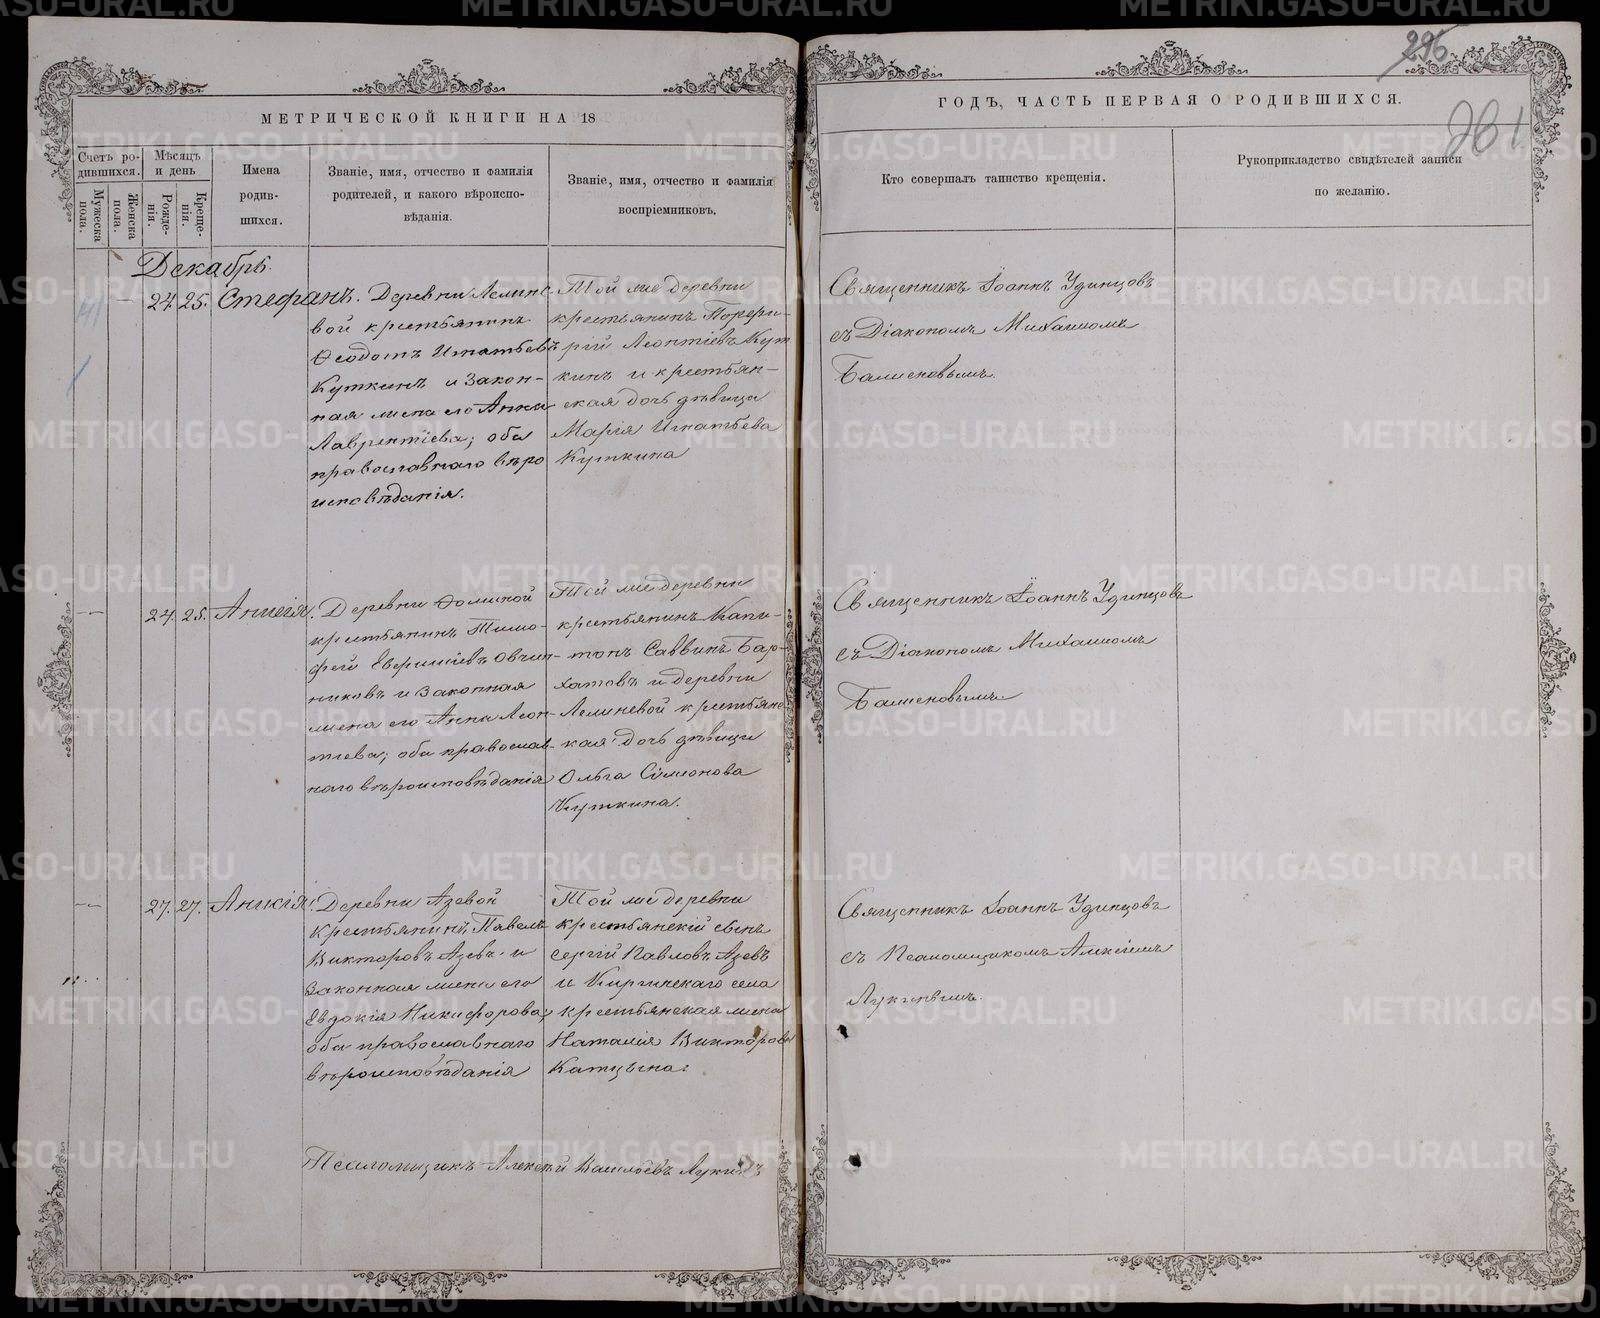 МЕТРИЧЕСКОЙ КНИГИ НА 18
ГОДЪ, ЧАСТЬ ПЕРВАЯ О РОДИВШИХСЯ.
295
Счетъ ро-
дившихся.
Мужеска
пола.
Женска
пола.
Мѣсяцъ
и день
Рожде-
нія.
Креще-
нія.
Имена
родив-
шихся.
Званіе, имя, отчество и фамилія
родителей, и какого вѣроиспо-
вѣданія.
Званіе, имя, отчество и фамилія
воспріемниковъ.
Кто совершалъ таинство крещенія.
Рукоприкладство свидѣтелей записи
по желанію.
Декабрь.
24. 25. Стефанъ.
Деревни
вой крестьянинъ
Ѳеодотъ Игнатьевъ
Куткинъ и закон-
ная жена его Анна
Лаврентіева; оба
православнаго вѣро
исповѣданія.
Той же деревни
крестьянинъ Порфи-
рій Леонтіевъ Кут
кинъ и крестьян-
ская дочь дѣвица
Марія Игнатьева
Куткина
Священникъ Іоаннъ Удинцовъ
съ Діакономъ Михаиломъ
24. 25. Анисія.
Деревни Ѳоминой
крестьянинъ Тимо-
фей Овчин-
никовъ и законная
жена его Анна Леон-
тіева; оба православ-
наго вѣроисповѣданія
Той же деревни
крестьянинъ Капи-
тонъ Саввинъ Бар-
хатовъ и деревни
крестьянс
кая дочь дѣвица
Ольга Симонова
Куткина.
Священникъ Іоаннъ Удинцовъ
съ Діакономъ Михаиломъ
27. 27. Анисія.
Деревни Азевой
крестьянинъ Павелъ
Викторовъ Азевъ и
законная жена его
Евдокія Никифорова;
оба православнаго
вѣроисповѣданія
Той же деревни
крестьянскій сынъ
Сергій Павловъ Азевъ
и Киргинскаго села
крестьянская жена
Наталія Викторова
Катцына.
Священникъ Іоаннъ Удинцовъ
съ Псаломщикомъ Алексіемъ
Лукинымъ.
Псаломщикъ Алексѣй Васильевъ Лукинъ
METRIKI.GASO-URAL.RU